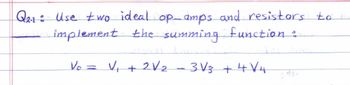 Q2-1: Use two ideal op-amps and resistors to
implement the summing function:
Vo = V1 + 2V2 - 3V3 + 4V4